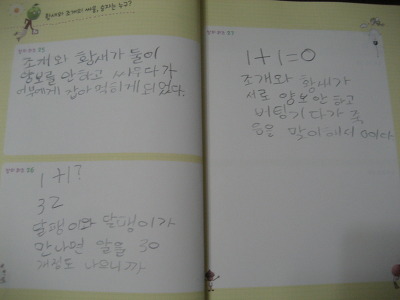 황새와 조개의 싸움, 승자는 누구?
조개와 황새가 둘이
양보를 안 하고 싸우다가
어부에게 잡아 먹히게 되었다.
1+1?
32
달팽이와 달팽이가
만나면 알을 30
개정도 나으니까
1+1=0
조개와 황새가
서로 양보 안 하고
버팅기다가 죽
음을 맞이해서 0이다.